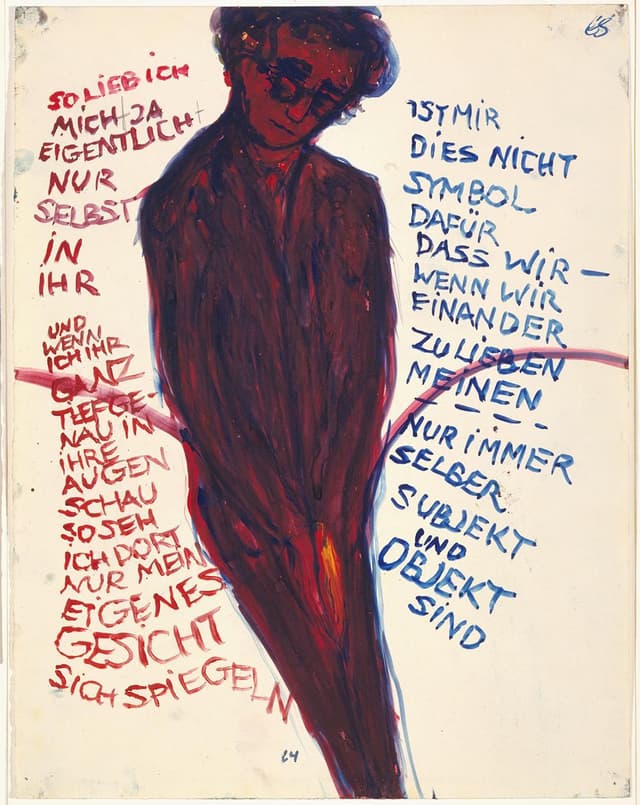 SO LIEB ICH
MICH JA
EIGENTLICH
NUR
SELBST
IN
IHR
UND
WENN
ICH IHR
GANZ
TIEFGE-
NAU IN
IHRE
AUGEN
SCHAU
SO SEH
ICH DORT
NUR MEIN
EIGENES
GESICHT
SICH SPIEGELN
IST MIR
DIES NICHT
SYMBOL
DAFÜR
DASS WIR –
WENN WIR
EINANDER
ZU LIEBEN
MEINEN – – – –
NUR IMMER
SELBER
SUBJEKT
UND
OBJEKT
SIND